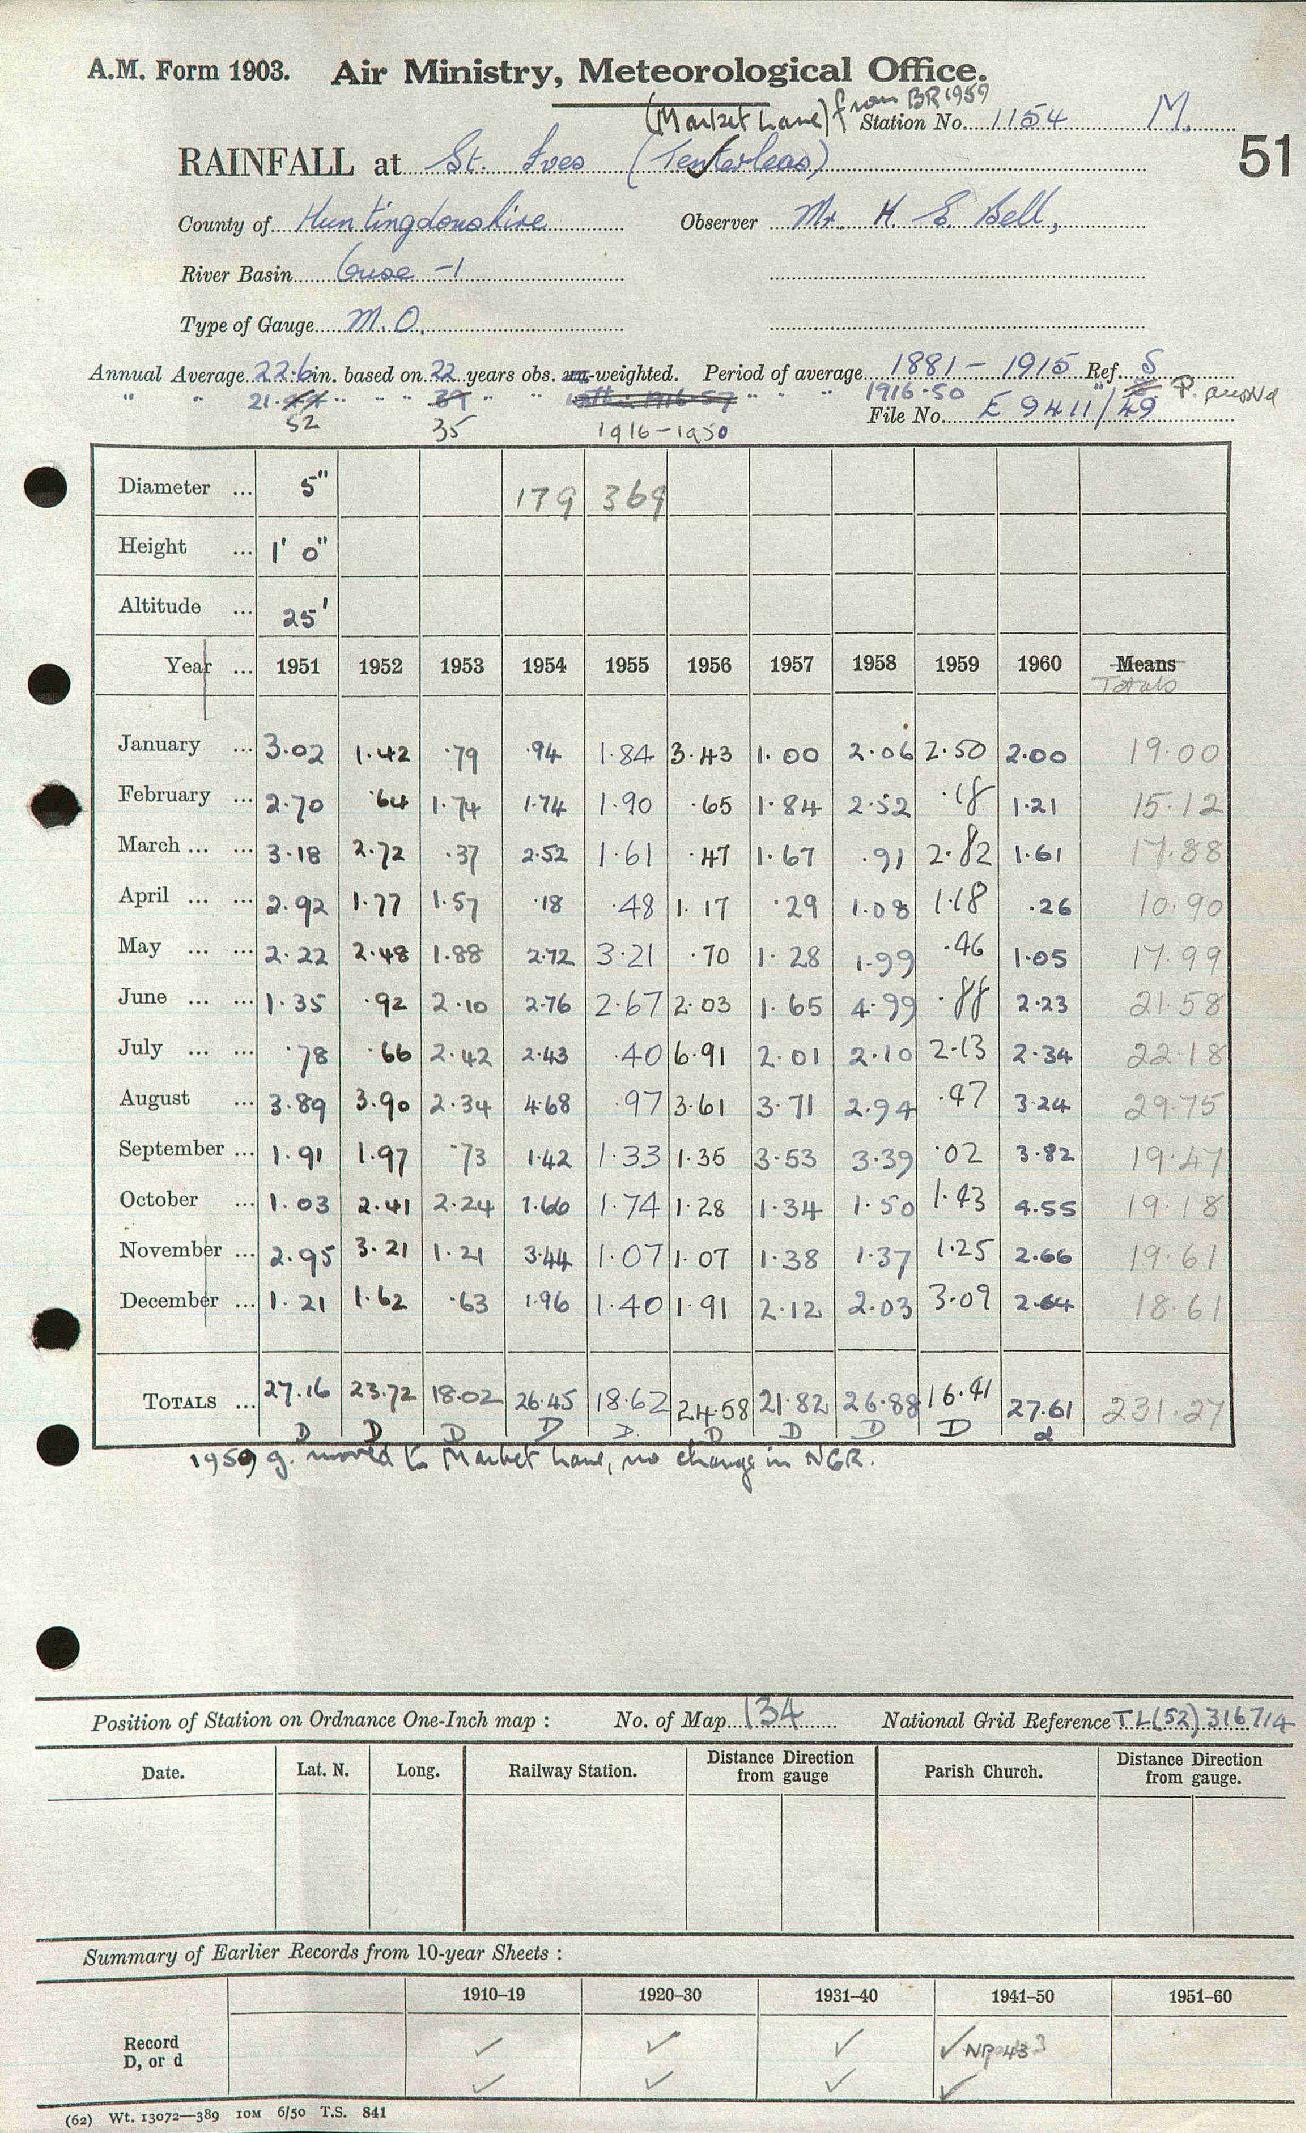 A.M. Form 1903. Air Ministry, Meteorological Office.
(Market Lane) from BR 1959
Station No. 1154 M.
51
RAINFALL at St. Ives (Tenterleas)
County of Huntingdonshire Observer Mr. H. E. Bell,
River Basin Ouse -1
Type of Gauge M.O.
Annual Average 22.6 in. based on 22 years obs. un-weighted. Period of average 1881 - 1915 Ref. S
" " 21. " " " 39 " " " " " 1916-50 "
52 35 1916-1950
File No. E 9411/49
Diameter ... 5" 179 369
Height ... 1' 0"
Altitude ... 25'
Year ... 1951 1952 1953 1954 1955 1956 1957 1958 1959 1960 Means
Totals
January ... 3.02 1.42 .79 .94 1.84 3.43 1.00 2.06 2.50 2.00 19.00
February ... 2.70 .64 1.74 1.74 1.90 .65 1.84 2.52 .18 1.21 15.12
March ... ... 3.18 2.72 .37 2.52 1.61 .47 1.67 .91 2.82 1.61 17.88
April ... ... 2.92 1.77 1.57 .18 .48 1.17 .29 1.08 1.18 .26 10.90
May ... ... 2.22 2.48 1.88 2.72 3.21 .70 1.28 1.99 .46 1.05 17.99
June ... ... 1.35 .92 2.10 2.76 2.67 2.03 1.65 4.99 .88 2.23 21.58
July ... ... .78 .66 2.42 2.43 .40 6.91 2.01 2.10 2.13 2.34 22.18
August ... 3.89 3.90 2.34 4.68 .97 3.61 3.71 2.94 .47 3.24 29.75
September ... 1.91 1.97 .73 1.42 1.33 1.35 3.53 3.39 .02 3.82 19.47
October ... 1.03 2.41 2.24 1.66 1.74 1.28 1.34 1.50 1.43 4.55 19.18
November ... 2.95 3.21 1.21 3.44 1.07 1.07 1.38 1.37 1.25 2.66 19.61
December ... 1.21 1.62 .63 1.96 1.40 1.91 2.12 2.03 3.09 2.64 18.61
TOTALS ... 27.16 23.72 18.02 26.45 18.62 24.58 21.82 26.88 16.41 27.61 231.27
D D D D D. D D D D d
1959 g. moved to Market Lane, no change in NGR.
Position of Station on Ordnance One-Inch map : No. of Map 134 National Grid Reference TL(52)316714
Date. Lat. N. Long. Railway Station. Distance from gauge Direction Parish Church. Distance from gauge. Direction
Summary of Earlier Records from 10-year Sheets :
1910–19 1920–30 1931–40 1941–50 1951–60
Record ✓ ✓ ✓ ✓ NP 43
D, or d ✓ ✓ ✓ ✓
(62) Wt. 13072—389 10M 6/50 T.S. 841